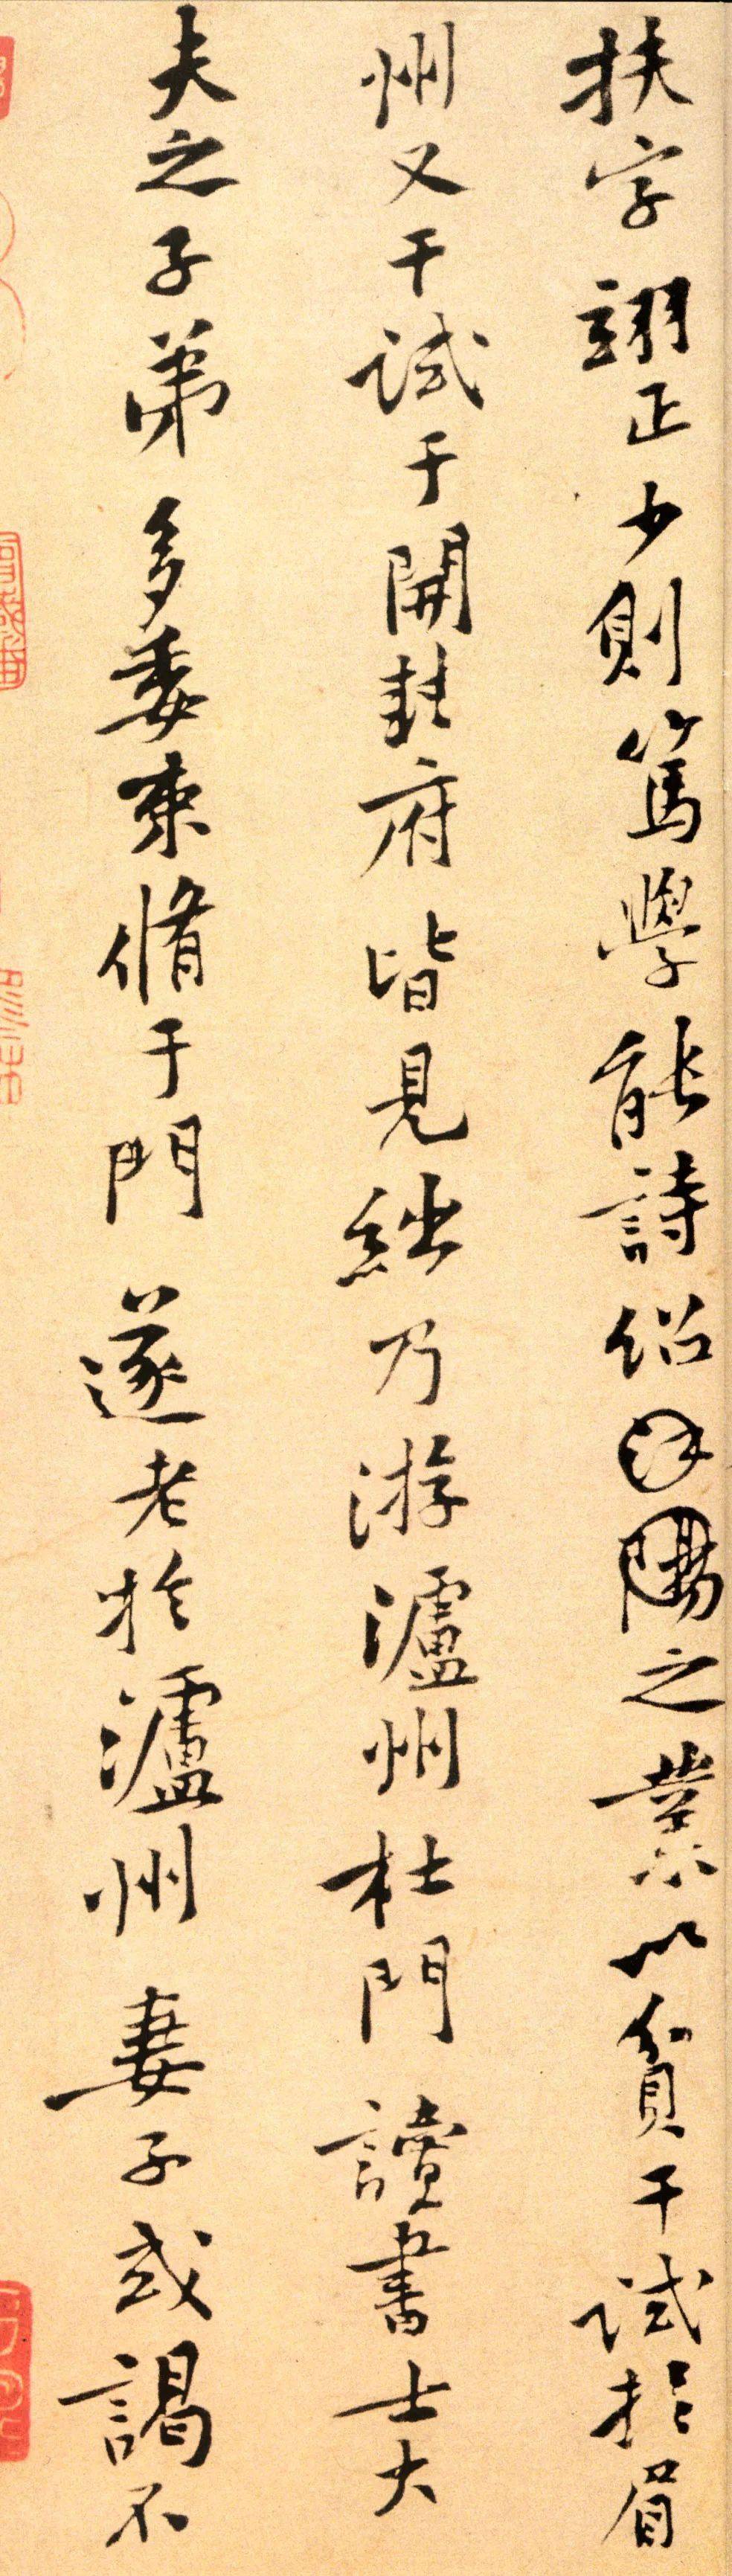 扶字翊正少則篤學能詩紹歐陽之業以貧干試於眉
州又干試于開封府皆見絀乃游瀘州杜門讀書士大
夫之子弟多委束脩于門遂老於瀘州妻子或謁不